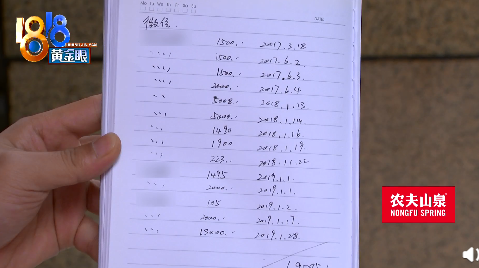 1818
黄金眼
DATE
1500. 2017.3.18
1500. 2017.6.2
1500. 2017.6.3
2000. 2017.6.4
5000. 2018.1.13
5000. 2018.1.14
1490 2018.1.16
1900 2018.1.19
223. 2018.1.22
1495 2019.1.1.
2000. 2019.1.1.
105 2019.1.2.
2000. 2019.1.17.
13000. 2019.1.28.
农夫山泉
NONGFU SPRING